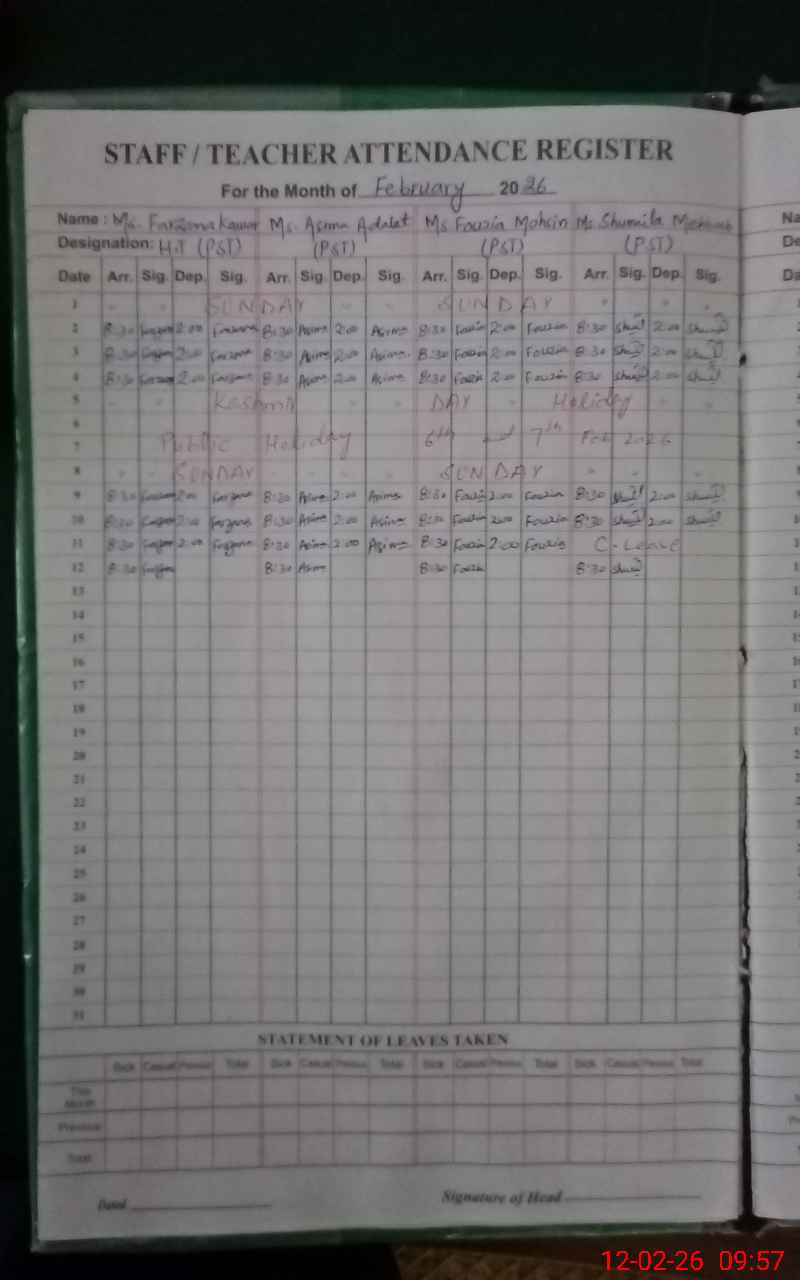 STAFF / TEACHER ATTENDANCE REGISTER
For the Month of February 2026
Name : Ms. Farzana Kawar Ms. Asma Adalat Ms Fouzia Mohsin Ms Shumila
Designation: H.T (PST) (PST) (PST) (PST)
Date Arr. Sig. Dep. Sig. Arr. Sig. Dep. Sig. Arr. Sig. Dep. Sig. Arr. Sig. Dep. Sig.
1 SUNDAY SUNDAY
2 8:30 Farzana 2:00 Farzana 8:30 Asima 2:00 Asima 8:30 Fouzia 2:00 Fouzia 8:30 2:00
3 8:30 Farzana 2:00 Farzana 8:30 Asima 2:00 Asima 8:30 Fouzia 2:00 Fouzia 8:30 2:00
4 8:30 Farzana 2:00 Farzana 8:30 Asima 2:00 Asima 8:30 Fouzia 2:00 Fouzia 8:30 2:00
5 Kashmir DAY Holiday
6
7 Public Holiday 6th and 7th Feb 2026
8 SUNDAY SUNDAY
9 8:30 Farzana 2:00 Farzana 8:30 Asima 2:00 Asima 8:30 Fouzia 2:00 Fouzia 8:30 2:00
10 8:30 Farzana 2:00 Farzana 8:30 Asima 2:00 Asima 8:30 Fouzia 2:00 Fouzia 8:30 2:00
11 8:30 Farzana 2:00 Farzana 8:30 Asima 2:00 Asima 8:30 Fouzia 2:00 Fouzia C-Leave
12 8:30 Farzana 8:30 Asima 8:30 Fouzia 8:30
13
14
15
16
17
18
19
20
21
22
23
24
25
26
27
28
29
30
31
STATEMENT OF LEAVES TAKEN
Sick Casual Total Sick Casual Total Sick Casual Total Sick Casual Total
This Month
Previous
Total
Dated Signature of Head
12-02-26 09:57